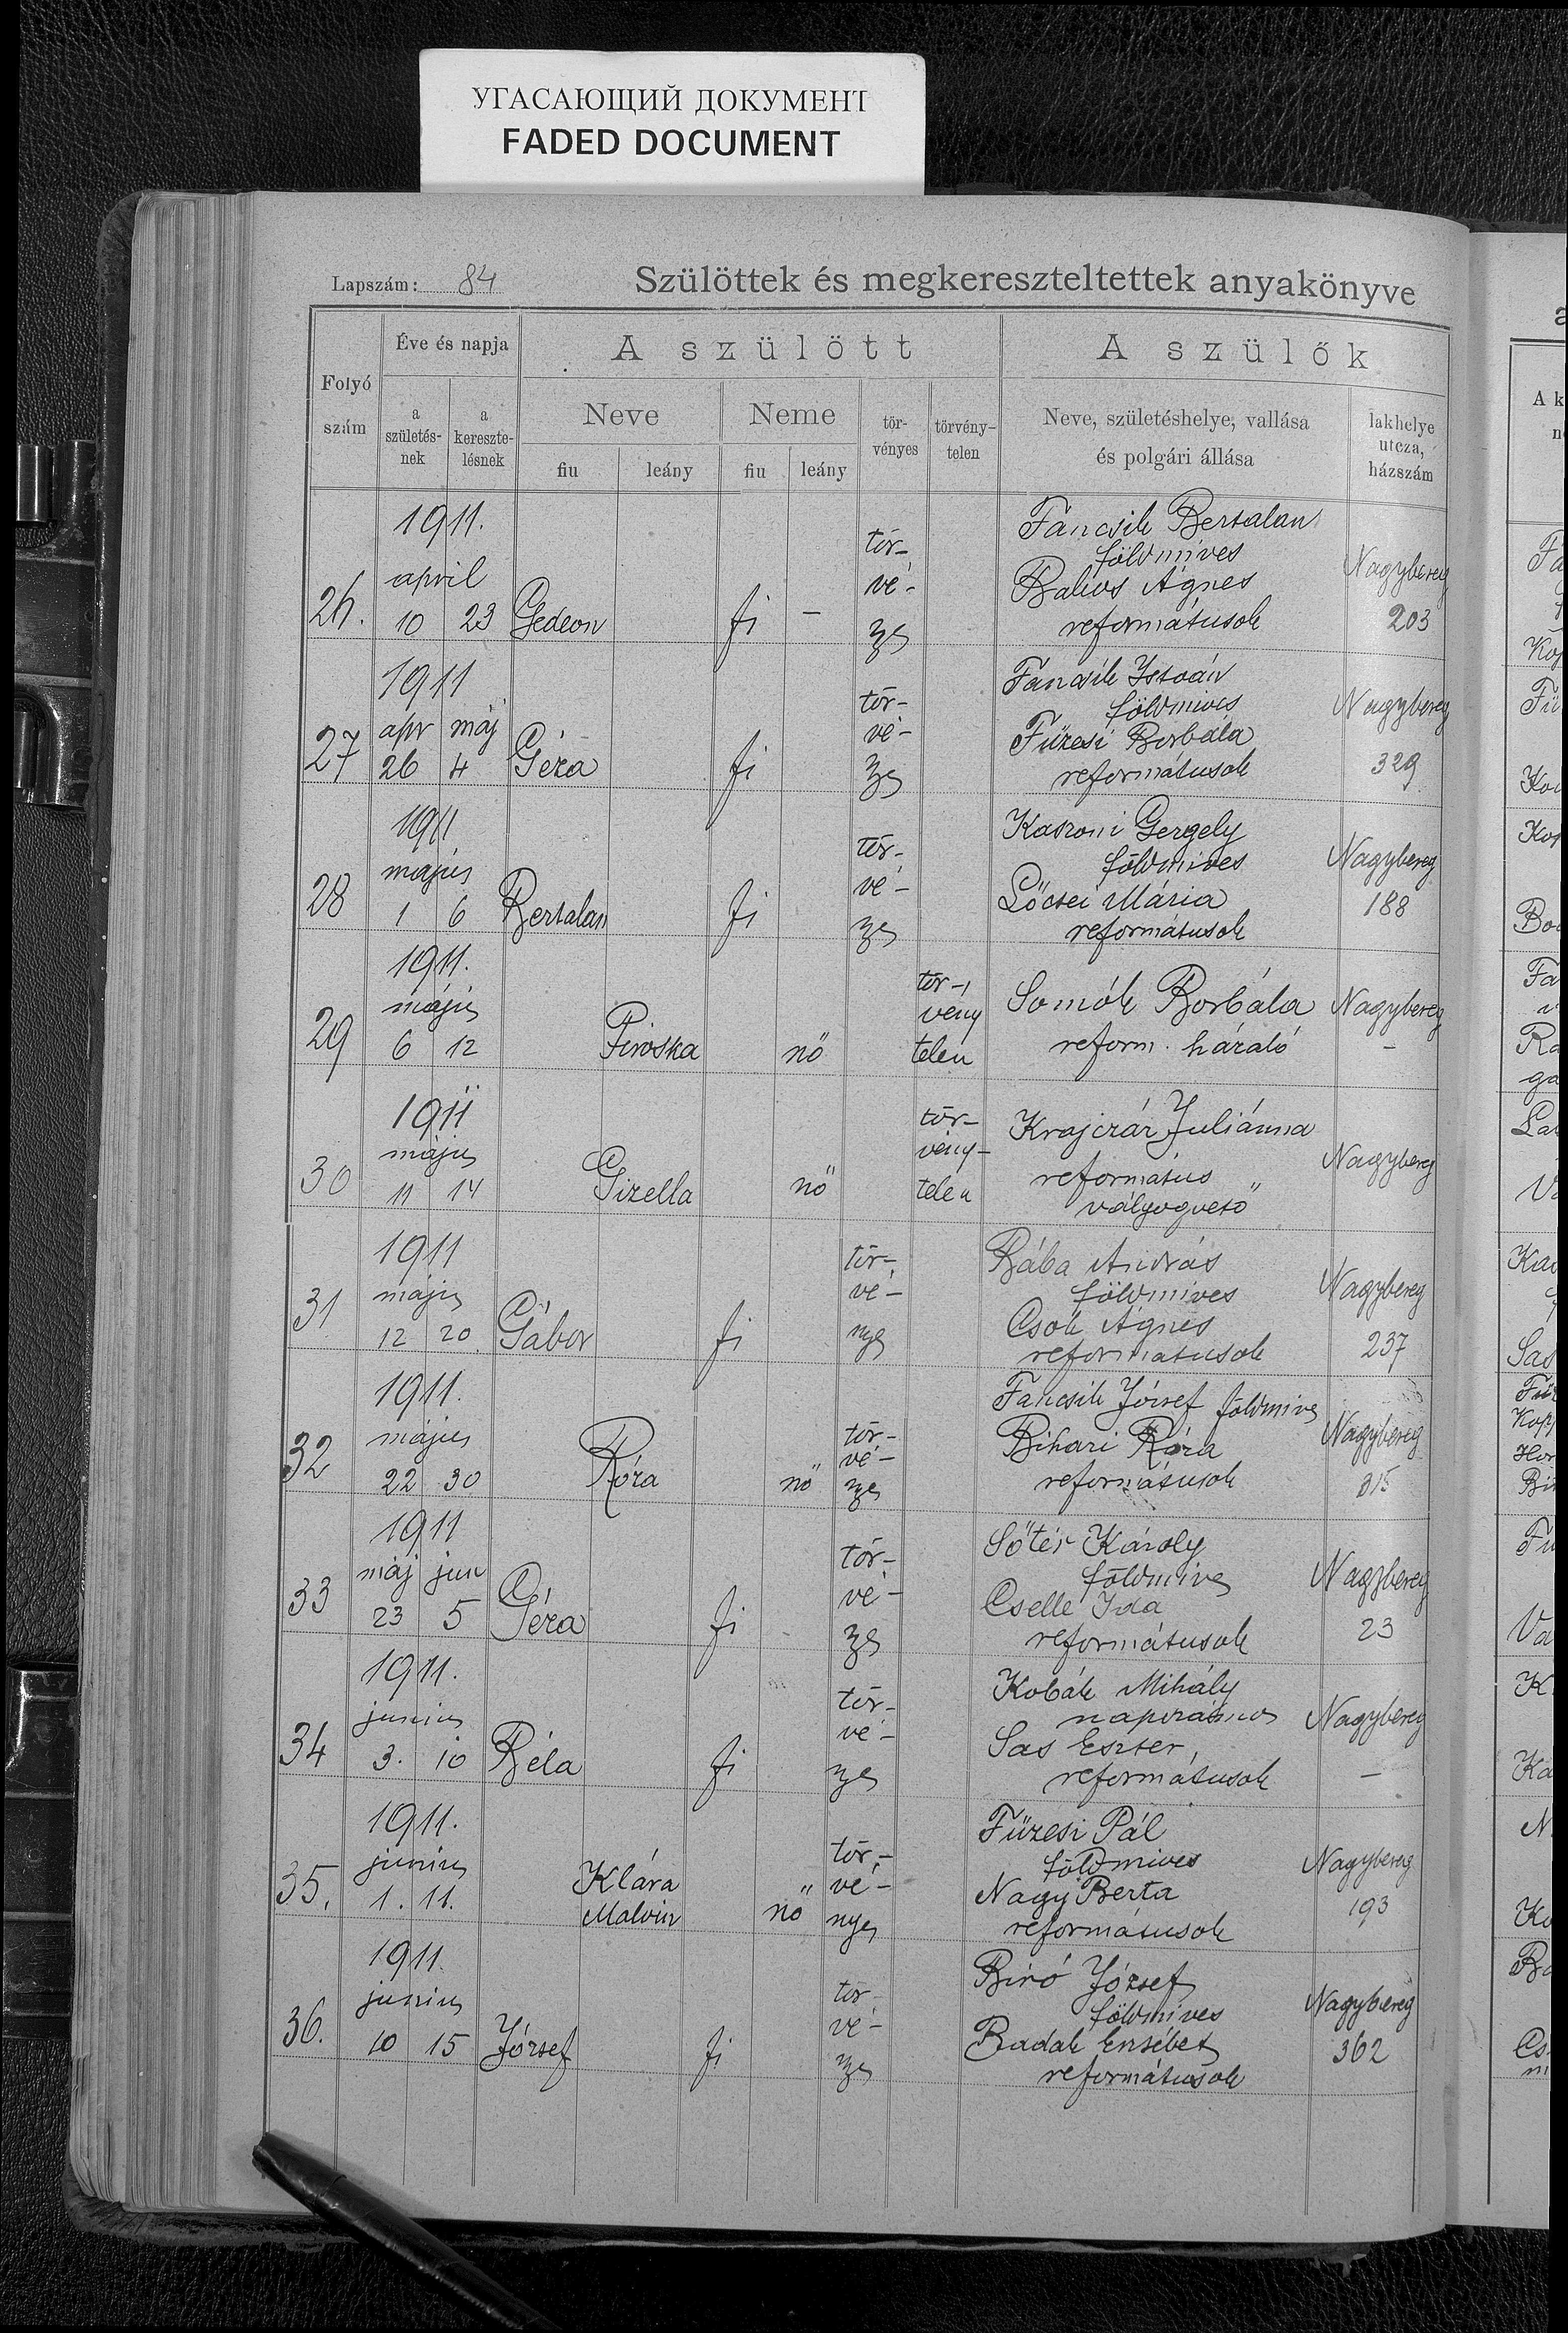 УГАСАЮЩИЙ ДОКУМЕНТ
FADED DOCUMENT
Lapszám: 84
Szülöttek és megkereszteltettek anyakönyve
Folyó szám
Éve és napja
a születés-nek
a kereszte-lésnek
A szülött
Neve
fiu
leány
Neme
fiu
leány
tör-vényes
törvény-telen
A szülők
Neve, születéshelye, vallása
és polgári állása
lakhelye
utcza,
házszám
1911.
april
26. 10 23 Gedeon fi –
tör-
vé-
Fancsik Bertalan
földmives
Balios Ágnes
reformátusok
Nagybereg
203
1911
apr máj
27 26 4 Géza fi
tör-
vé-
Fancsik István
földmives
Füzesi Borbála
reformátusok
Nagybereg
329
1911
május
28 1 6 Bertalan fi
tör-
vé-
Kaszoni Gergely
földmives
Lőcsei Mária
reformátusok
Nagybereg
188
1911.
május
29 6 12 Piroska nő
tör-
vény
telen
Somók Borbála
reform. háraló
Nagybereg
–
1911
május
30 11 14 Gizella nő
tör-
vény-
telen
Krajczár Juliánna
református
vályogvető
Nagybereg
1911
május
31 12 20. Gábor fi
tör-
vé-
nyes
Bába András
földmives
Csok Ágnes
reformatusok
Nagybereg
237
1911.
május
32 22 30 Róza nő
tör-
vé-
Fancsik József földmives
Bihari Róza
reformátusok
Nagybereg
315
1911
máj jun
33 23 5 Géza fi
tör-
vé-
Sőtér Károly
földmives
Cselle Ida
reformátusok
Nagybereg
23
1911.
junius
34 3. 10 Béla fi
tör-
vé-
Kobák Mihály
napszámos
Sas Eszter,
reformatusok
Nagybereg
–
1911.
junius
35. 1. 11. Klára
Malvin nő
tör-
vé-
nyes
Füzesi Pál
földmives
Nagy Berta
reformátusok
Nagybereg
193
1911.
junius
36. 10 15 József fi
tör-
vé-
Biró József
földmives
Badak Erzsébet
reformátusok
Nagybereg
362